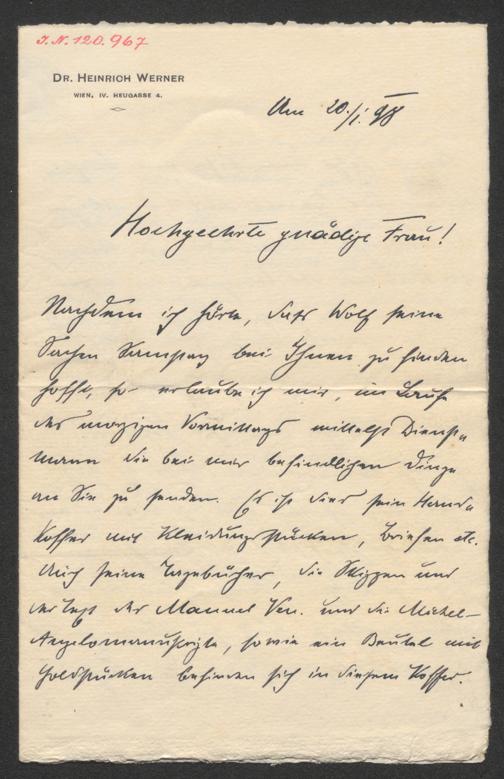 I.N. 120.967
DR. HEINRICH WERNER
WIEN, IV. HEUGASSE 4.
Am 20./I. 98
Hochgeehrte gnädige Frau!
Nachdem ich hörte, dass Wolf seine
Sachen Samstag bei Ihnen zu finden
hofft, so erlaube ich mir, im Laufe
des morgigen Vormittags mittelst Dienst-
mann die bei mir befindlichen Dinge
an Sie zu senden. Es ist dies sein Hand-
koffer mit Kleidungsstücken, Briefen etc.
Auch seine Tagebücher, die Skizzen und
der Text der Manuel Ven. und die Michel-
Angelomanuskripte, sowie ein Beutel mit
Goldstücken befinden sich in diesem Koffer.